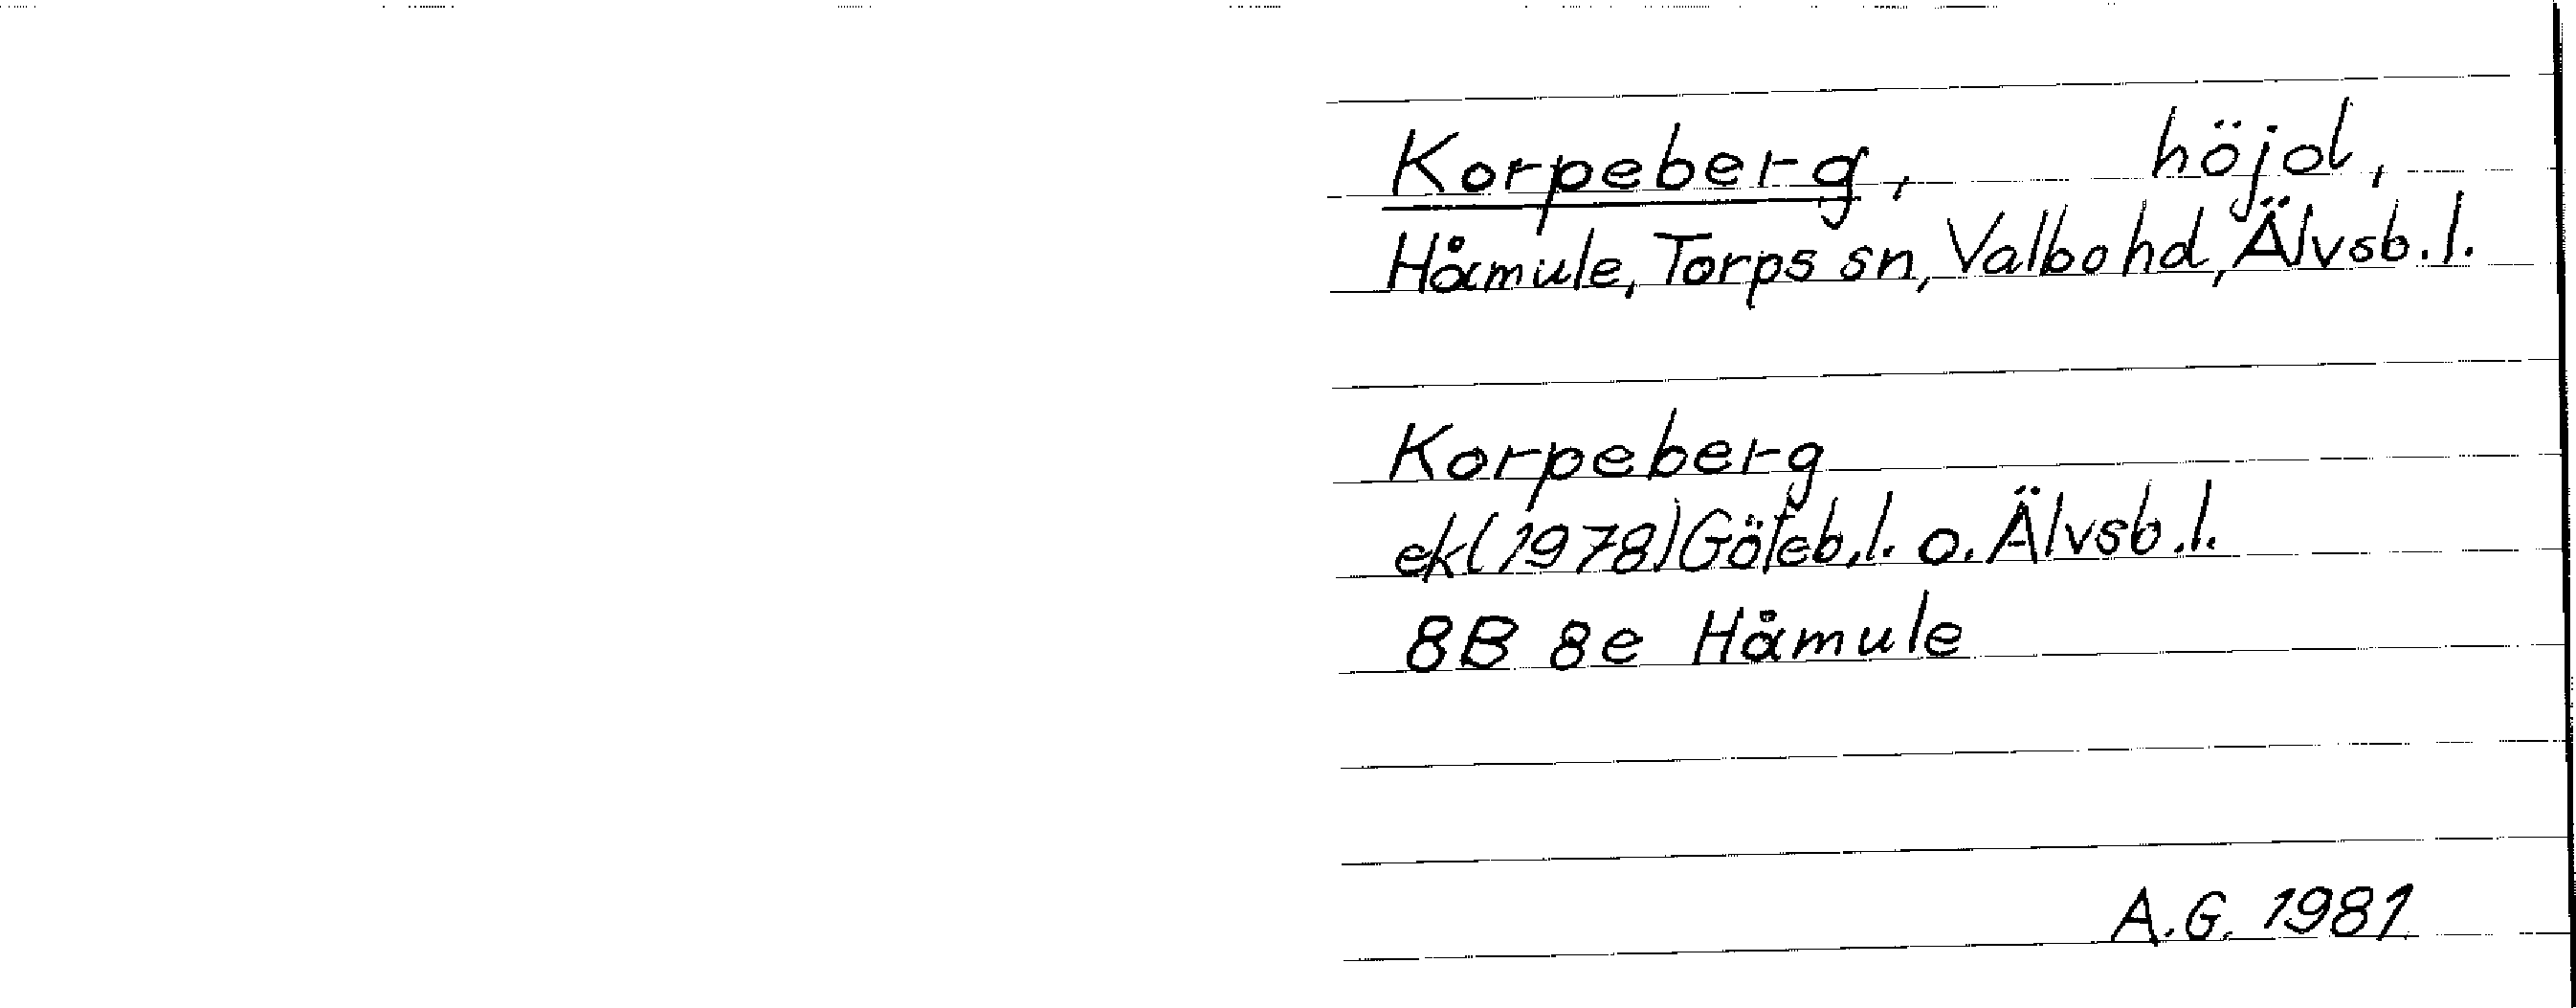 Korpeberg, höjd,
Håmule, Torps sn, Valbo hd, Älvsb.l.
Korpeberg
ek (1978) Göteb.l. o. Älvsb.l.
8B 8e Håmule
A.G. 1981